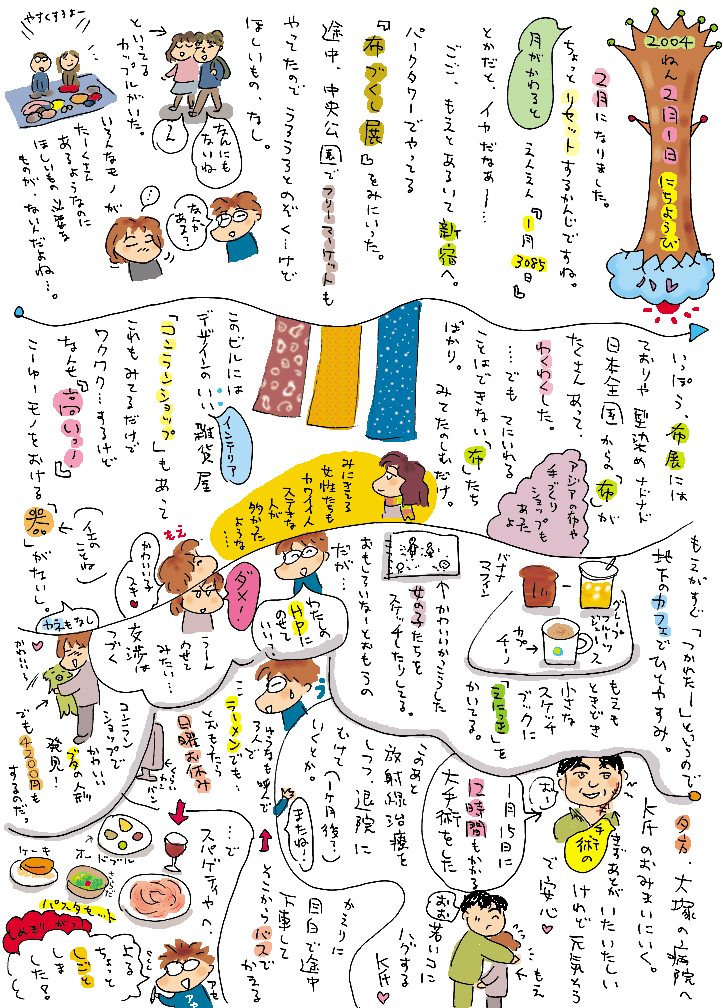 2004
ねん
2月
1日
にちようび
ハレ
2月になりました。
ちょっとリセットするかんじですね。
月がかわると
えんえん『1月
3085
日』
とかだと、イヤだなぁー…
ごご、もえとあるいて新宿へ。
パークタワーでやってる
『布づくし展』をみにいった。
途中、中央公園でフリーマーケットも
やってたのでうろうろとのぞく…けど
ほしいもの、なし。
なんにも
ないね
うん
といってる
カップルがいた。
やすくするよー
いろんなモノが
たーくさん
あるようなのに
ほしいもの 必要な
ものが、ないんだよね…。
なんか
ある?
…
いっぽう、布展には
ており や 型染め ナドナド
日本全国からの「布」が
たくさんあって、
わくわくした。
…でも てにいれる
ことはできない「布」たち
ばかり。 みてたのしむだけ。
アジアの布や
手づくり
ショップも
あったよ
みにきてる
女性たちも
カワイイ人
ステキな
人が
多かった
ような
…
このビルには
デザインのいい雑貨屋
インテリア
「コンランショップ」もあって
これもみてるだけで
ワクワク…するけど
なんせ『高いっー』
こーゆーモノをおける
「器」がないし。
(イエのことね)
もえがすぐ「つかれたー」というので
地下のカフェでひとやすみ。
バナナ
マフィン
グレープ
フルーツ
ジュース
カプ
チーノ
もえも
ときどき
小さな
スケッチ
ブックに
「えにっき」を
かいてる。
↑かわいいかっこうした
女の子たちを
スケッチしたりしてる。
おもしろいなーとおもうの
だが…
わたしの
HPに
のせて
いい?
ダメ!
もえ
かわいい子
スキ♥
うーん
のせて
みたい…
交渉は
つづく
やえもなし
かわいい〜
コンラン
ショップで
かわいい
ブタの人形
発見!
でも4200円も
するのだ。
夕方、大塚の病院へ
K氏のおみまいにいく。
おぅ
手術の
きずあとが いたいたしい
けれど 元気そう
で 安心♥
1月15日に
12時間もかかる
大手術をした
このあと
放射線治療を
しつつ、退院に
むけて(1ヶ月後?)
いくとか。
きたね!
もえ
おお 若いコに
ハグする
K氏♥
かえりに
目白で途中
下車して
そこからバスで
かえる
ラーメンでも
とおもったら
日曜お休み
…で
スパゲティやへ
オードブル
ケーキ
パスタセット
しめきりが…っ
よる
ちょっと
しごと
しました?